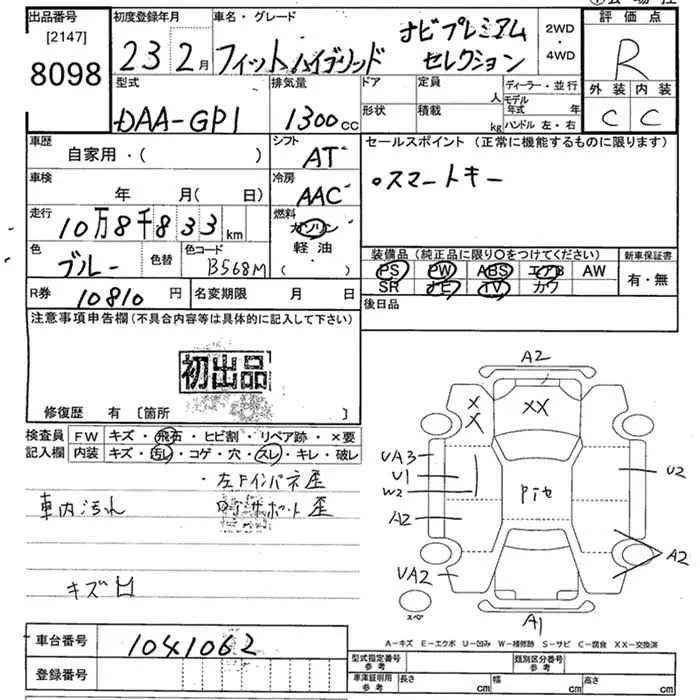 出品番号
[2147]
8098
初度登録年月
23 2月
車名・グレード
フィットハイブリッド
ナビプレミアム
セレクション
2WD
・
4WD
評価点
R
外装 内装
C C
型式
DAA-GP1
排気量
1300cc
ドア
形状
定員
人
積載
kg
ディーラー・並行
モデル年式 年
ハンドル 左・右
車歴
自家用・( )
シフト
AT
セールスポイント (正常に機能するものに限ります)
・スマートキー
車検
年 月( 日)
冷房
AAC
走行
10万8千833km
燃料
ガソリン
軽油
・( )
色
ブルー
色替
色コード
B568M
装備品 (純正品に限り○をつけてください)
PS PW ABS エアB AW
SR ナビ TV カワ
新車保証書
有・無
R券
10810円
名変期限 月 日
後日品
注意事項申告欄(不具合内容等は具体的に記入して下さい)
初出品
修復歴 有 〔箇所 〕
検査員
記入欄
FW キズ・飛石・ヒビ割・リペア跡・×要
内装 キズ・汚レ・コゲ・穴・スレ・キレ・破レ
・左Fインパネ歪
サポート歪
車内汚れ
キズ凹
A2
X
X
XX
UA3
U1
W2
A2
UA2
U2
A2
A1
スペア
A-キズ E-エクボ U-凹み W-補修跡 S-サビ C-腐食 XX-交換済
車台番号
1041062
登録番号
型式指定番号
参考
類別区分番号
参考
車庫証明用
参考
長さ cm
幅 cm
高さ cm